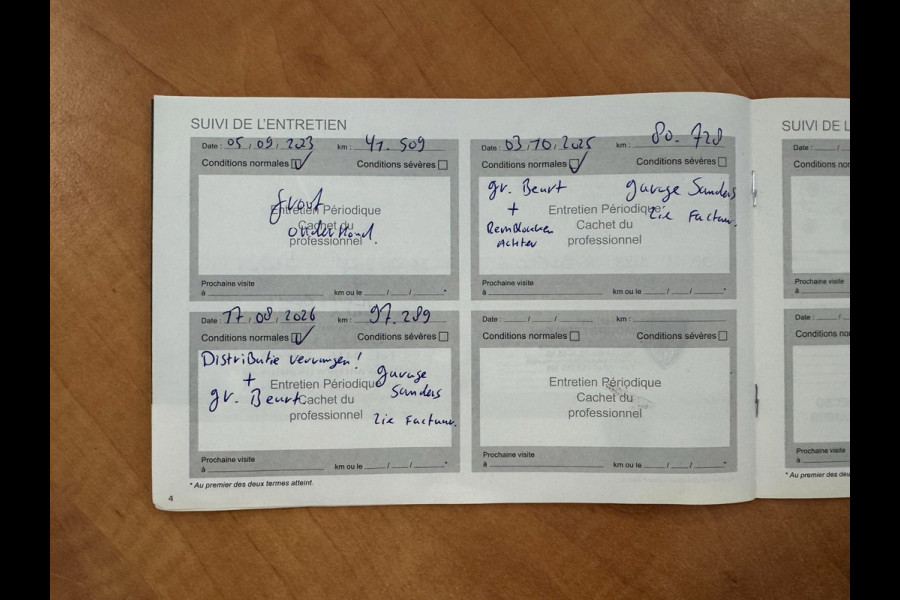 SUIVI DE L'ENTRETIEN
Date : 05, 09, 2023 km : 41.509
Conditions normales Conditions sévères
groot
onderhoud.
Entretien Périodique
Cachet du
professionnel
Prochaine visite
à km ou le / / *
Date : 03, 10, 2025 km : 80.728
Conditions normales Conditions sévères
gr. Beurt garage Sanders
+ zie Factuur.
Remblokken
Achter
Entretien Périodique
Cachet du
professionnel
Prochaine visite
à km ou le / / *
Date : 17, 08, 2026 km : 97.289
Conditions normales Conditions sévères
Distributie vervangen!
+ garage
gr. Beurt Sanders
zie Factuur.
Entretien Périodique
Cachet du
professionnel
Prochaine visite
à km ou le / / *
Date : / / km :
Conditions normales Conditions sévères
Entretien Périodique
Cachet du
professionnel
Prochaine visite
à km ou le / / *
* Au premier des deux termes atteint.
4
SUIVI DE L
Date : /
Conditions no
Prochaine visite
à
Date : /
Conditions no
Prochaine visite
à
* Au premier des de